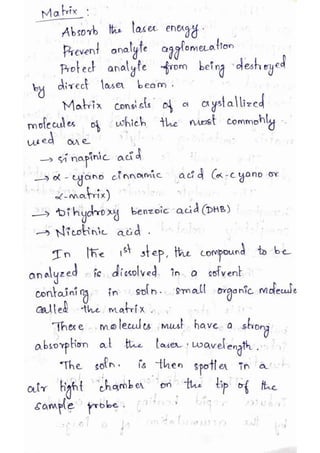 Matrix :
Absorb the laser energy.
Prevent analyte agglomeration
Protect analyte from being destroyed
by direct laser beam.
Matrix consists of a crystallized
molecules of which the most commonly
used are
→ sinapinic acid
→ α-cyano cinnamic acid (α-cyano or
α-matrix)
→ Dihydroxy benzoic acid (DHB)
→ Nicotinic acid.
In the 1st step, the compound to be
analyzed is dissolved in a solvent
containing in soln. small organic molecule
called the matrix.
These molecules must have a strong
absorption at the laser wavelength.
The soln. is then spotler in a
air tight chamber on the tip of the
sample probe.